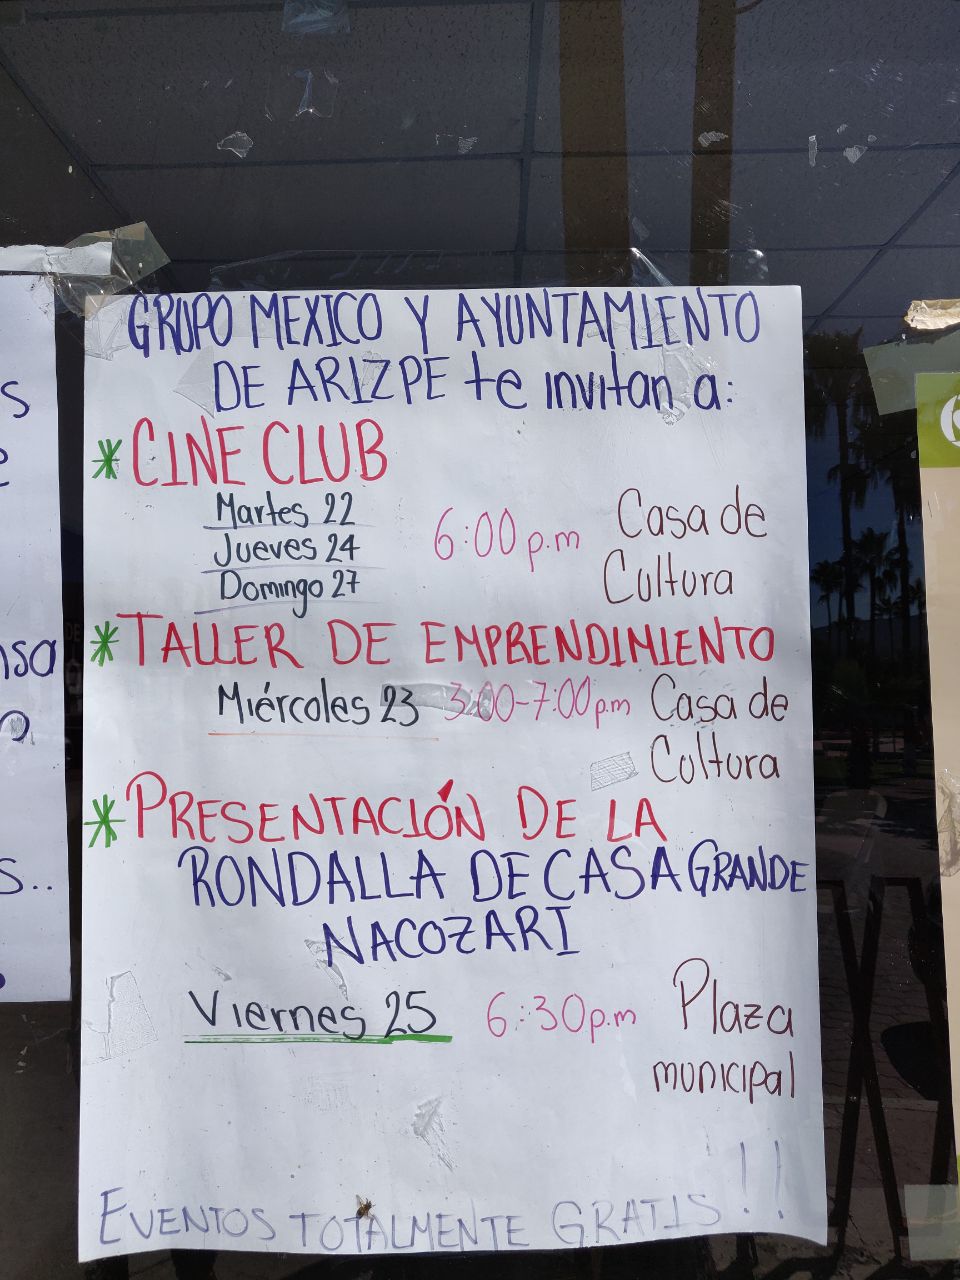 GRUPO MEXICO Y AYUNTAMIENTO
DE ARIZPE te invitan a:
* CINE CLUB
Martes 22
Jueves 24
Domingo 27
6:00 p.m
Casa de
Cultura
* TALLER DE EMPRENDIMIENTO
Miércoles 23 3:00-7:00 p.m Casa de
Cultura
* PRESENTACIÓN DE LA
RONDALLA DE CASA GRANDE
NACOZARI
Viernes 25 6:30 p.m Plaza
municipal
EVENTOS TOTALMENTE GRATIS!!